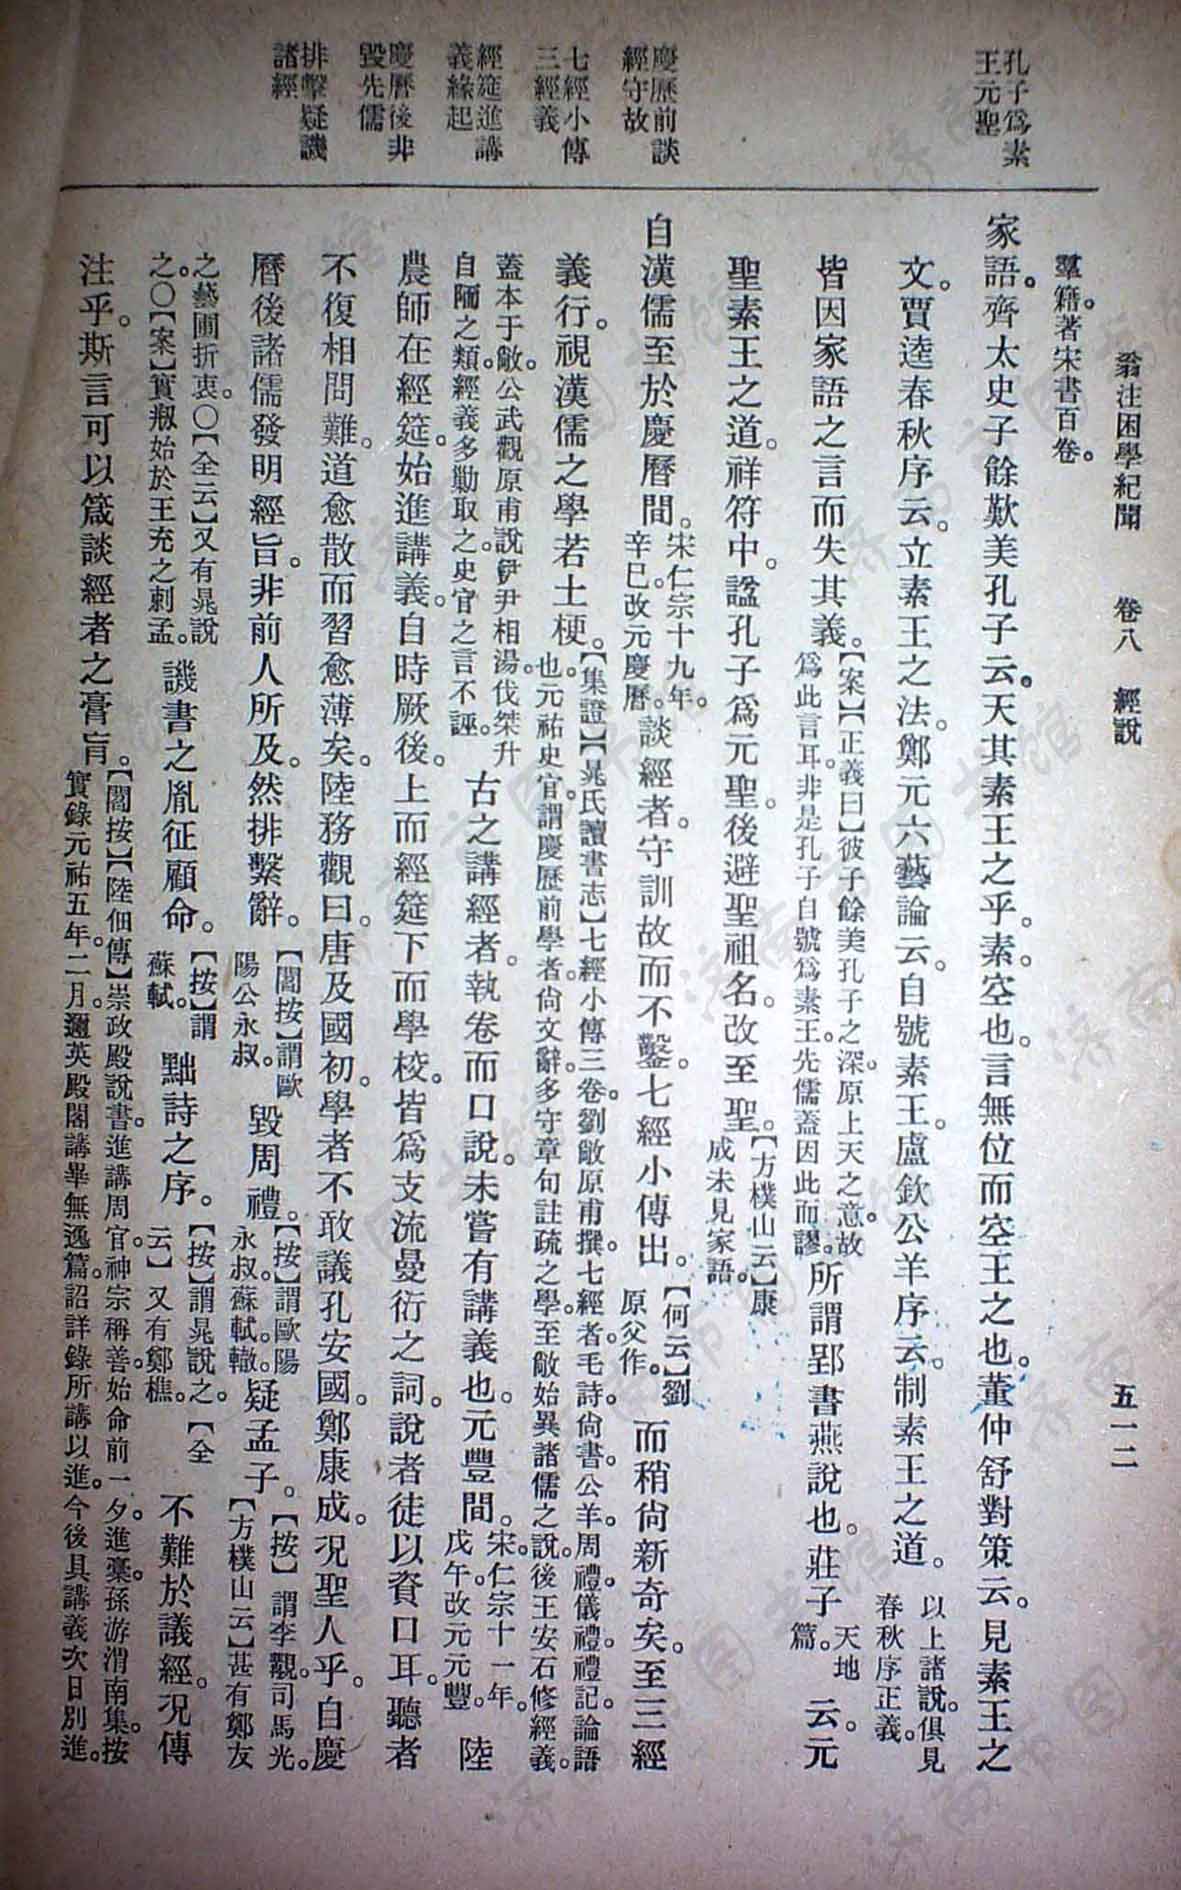 翁注困學紀聞　卷八　經說　五一二
孔子爲素
王元聖
慶歷前談
經守故
七經小傳
三經義
經筵進講
義緣起
慶曆後非
毀先儒
排擊疑譏
諸經
羣籍。著宋書百卷。
家語。齊太史子餘歎美孔子云。天其素王之乎。素。空也。言無位而空王之也。董仲舒對策云。見素王之
文。賈逵春秋序云。立素王之法。鄭元六藝論云。自號素王。盧欽公羊序云。制素王之道。以上諸說。俱見春秋序正義。
皆因家語之言而失其義。【案】【正義曰】彼子餘美孔子之深。原上天之意。故爲此言耳。非是孔子自號爲素王。先儒蓋因此而謬。所謂郢書燕說也。莊子天地篇。云。元
聖素王之道。祥符中。諡孔子爲元聖。後避聖祖名。改至聖。【方樸山云】康成未見家語。
自漢儒至於慶曆間。宋仁宗十九年。辛巳。改元慶曆。談經者。守訓故而不鑿。七經小傳出。【何云】劉原父作。而稍尙新奇矣。至三經
義行。視漢儒之學若土梗。【集證】【晁氏讀書志】七經小傳三卷。劉敞原甫撰。七經者。毛詩。尙書。公羊。周禮。儀禮。禮記。論語也。元祐史官。謂慶歷前學者。尙文辭。多守章句註疏之學。至敞始異諸儒之說。後王安石修經義。
蓋本于敞。公武觀原甫說伊尹相湯。伐桀升自陑之類。經義多勦取之。史官之言不誣。古之講經者。執卷而口說。未嘗有講義也。元豐間。宋仁宗十一年。戊午。改元元豐。陸
農師在經筵。始進講義。自時厥後。上而經筵。下而學校。皆爲支流曼衍之詞。說者徒以資口耳。聽者
不復相問難。道愈散而習愈薄矣。陸務觀曰。唐及國初。學者不敢議孔安國。鄭康成。況聖人乎。自慶
曆後諸儒發明經旨。非前人所及。然排繫辭。【閻按】謂歐陽公永叔。毀周禮。【按】謂歐陽永叔。蘇軾。轍。疑孟子。【按】謂李覯。司馬光。【方樸山云】甚有鄭友
之藝圃折衷。〇【全云】又有晁說之。〇【案】實剏始於王充之刺孟。譏書之胤征顧命。【按】謂蘇軾。黜詩之序。【按】謂晁說之。【全云】又有鄭樵。不難於議經。況傳
注乎。斯言可以箴談經者之膏肓。【閻按】【陸佃傳】崇政殿說書。進講周官。神宗稱善。始命前一夕。進稾。孫游渭南集。按實錄元祐五年。二月。邇英殿閣講畢無逸篇。詔詳錄所講以進。今後具講義次日別進。